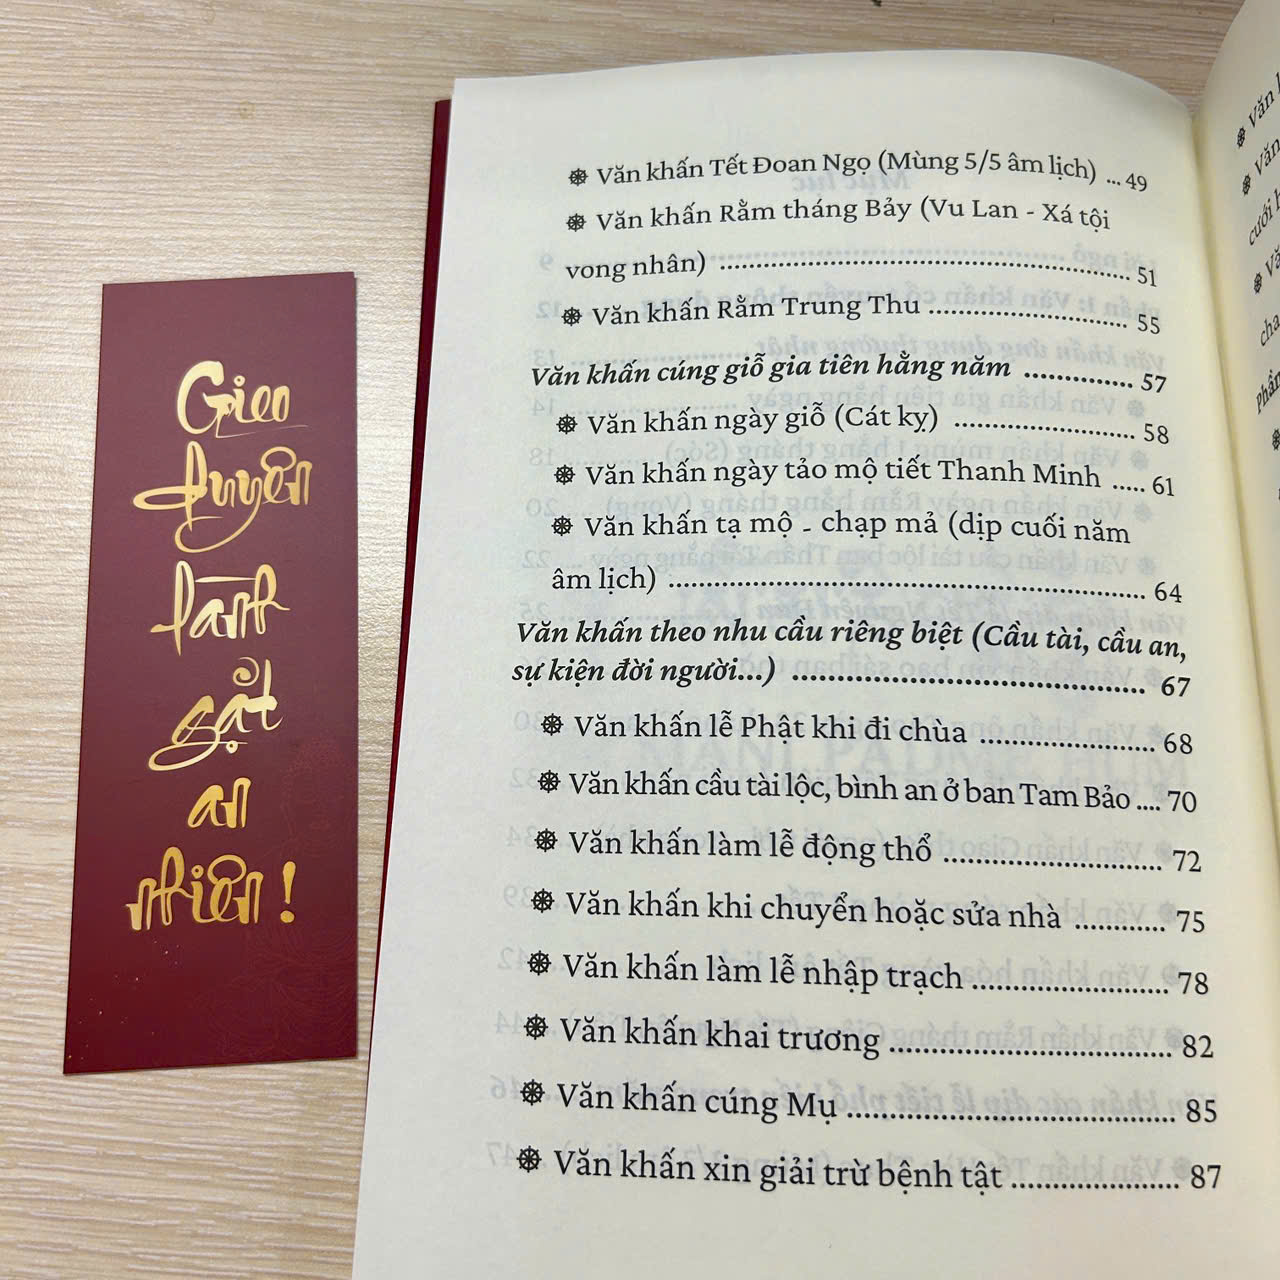 Gieo
duyên
lành
gặt
an
nhiên!
Văn khấn Tết Đoan Ngọ (Mùng 5/5 âm lịch) ... 49
Văn khấn Rằm tháng Bảy (Vu Lan - Xá tội
vong nhân) ........................................................ 51
Văn khấn Rằm Trung Thu ........................... 55
Văn khấn cúng giỗ gia tiên hằng năm ............. 57
Văn khấn ngày giỗ (Cát kỵ) ......................... 58
Văn khấn ngày tảo mộ tiết Thanh Minh ..... 61
Văn khấn tạ mộ - chạp mả (dịp cuối năm
âm lịch) ................................................................ 64
Văn khấn theo nhu cầu riêng biệt (Cầu tài, cầu an,
sự kiện đời người...) .......................................... 67
Văn khấn lễ Phật khi đi chùa ........................ 68
Văn khấn cầu tài lộc, bình an ở ban Tam Bảo .... 70
Văn khấn làm lễ động thổ ............................. 72
Văn khấn khi chuyển hoặc sửa nhà ............ 75
Văn khấn làm lễ nhập trạch ......................... 78
Văn khấn khai trương ................................... 82
Văn khấn cúng Mụ ............................................. 85
Văn khấn xin giải trừ bệnh tật ..................... 87
Văn
Văn
cưới
Phần